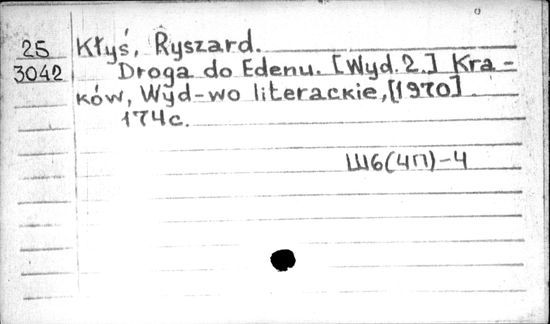 25
3042
Kłyś, Ryszard.
Droga do Edenu. [Wyd. 2.] Kra-
ków, Wyd-wo literackie, [1970].
174c.
Ш6(4П)-4